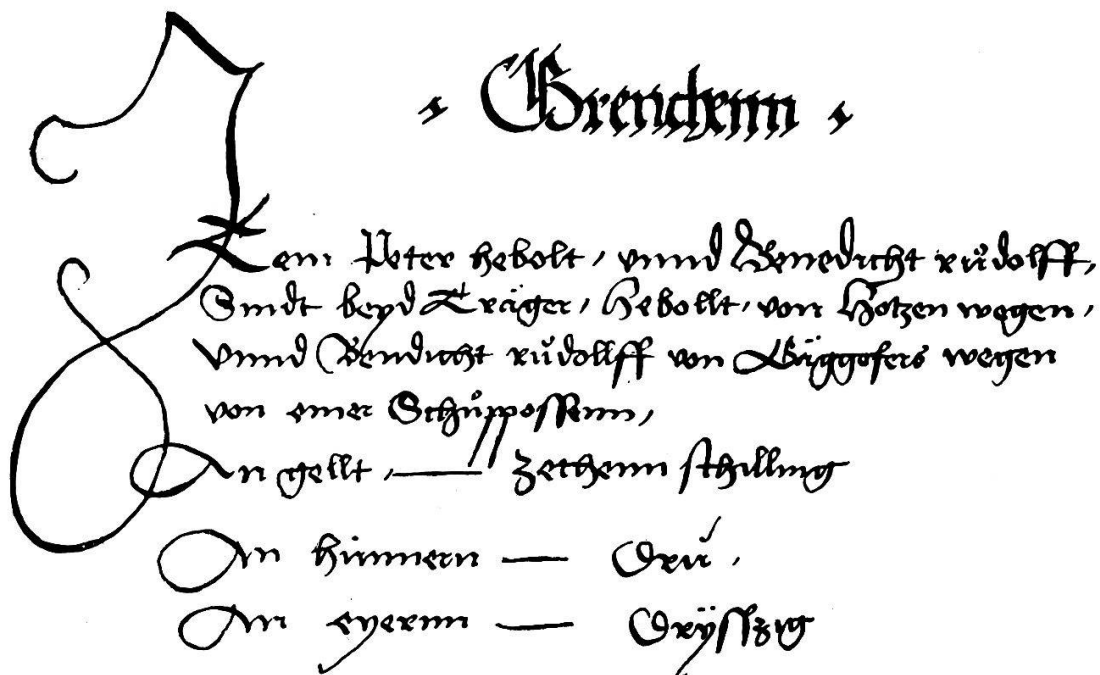 Grenchenn
Item Peter hebolt, vnnd Benedicht růdolff,
Sindt beyd Träger, Hebollt, von Hotzen wegen,
Vnnd Bendicht růdollff von Gäggofers wegen
von einer Schůppossenn,
An gellt, — zechenn schilling
An hünnern — Drü,
An eyernn — Drysszig